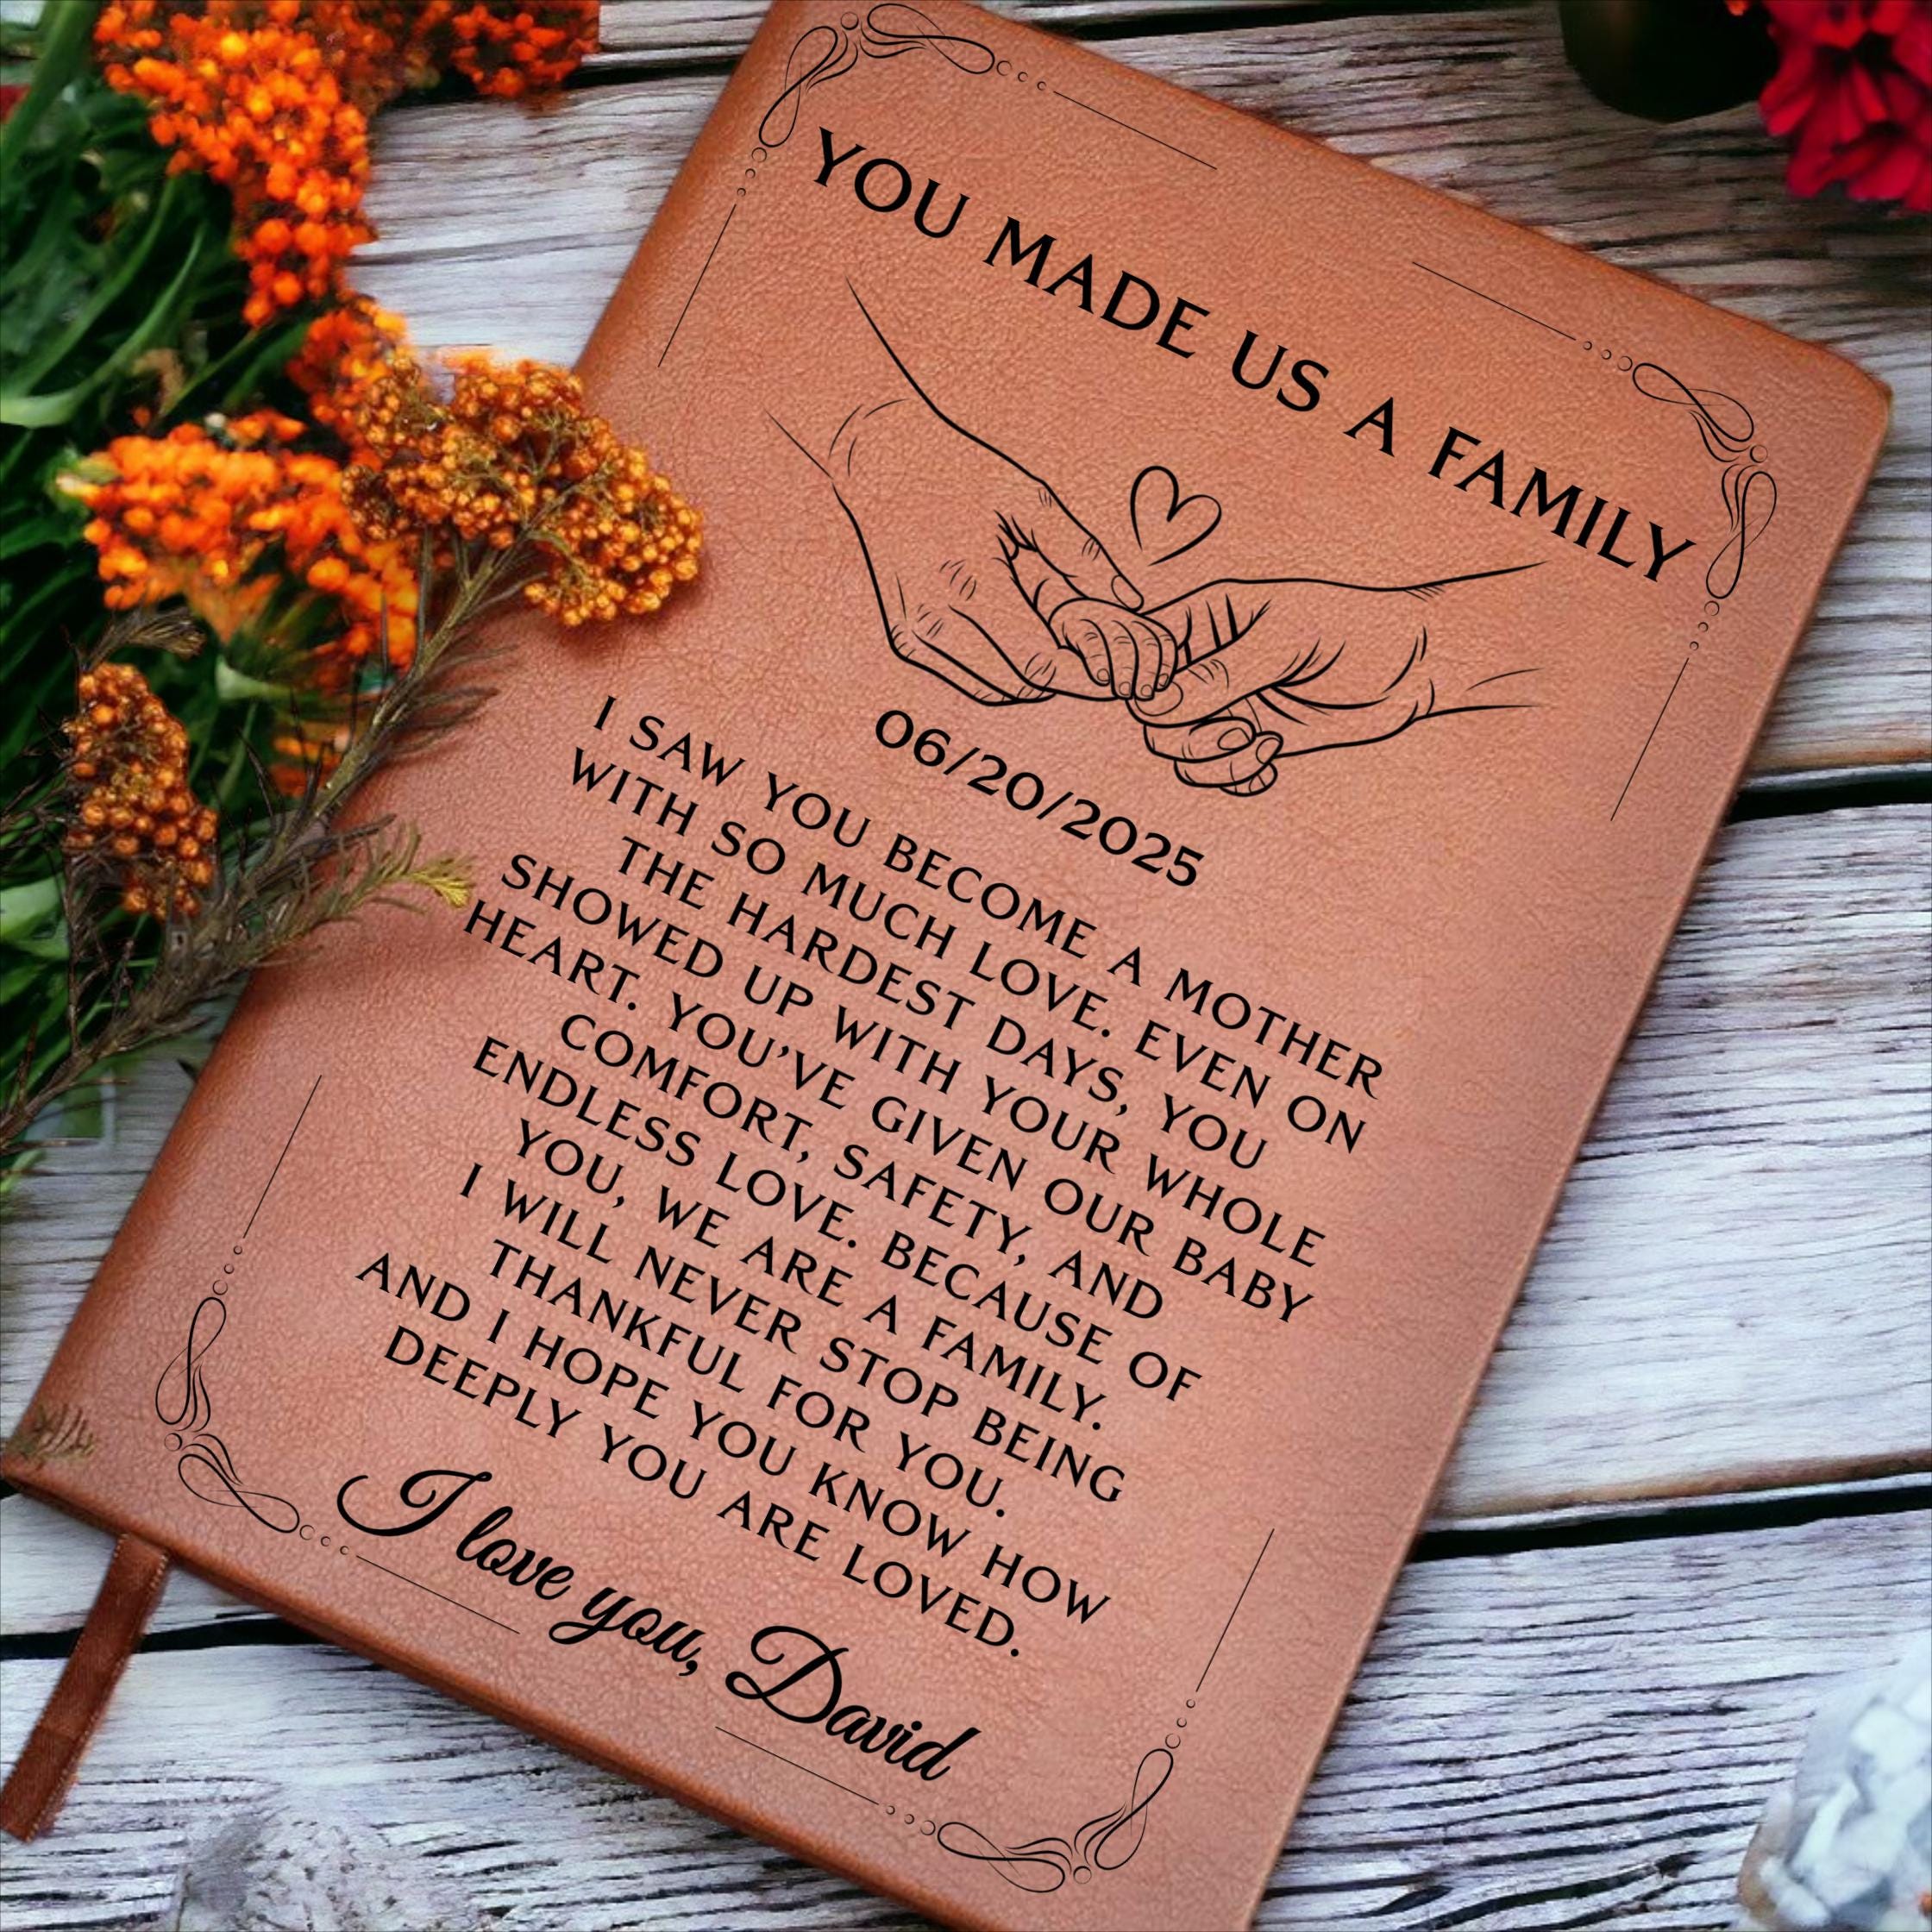 YOU MADE US A FAMILY
06/20/2025
I SAW YOU BECOME A MOTHER
WITH SO MUCH LOVE. EVEN ON
THE HARDEST DAYS, YOU
SHOWED UP WITH YOUR WHOLE
HEART. YOU'VE GIVEN OUR BABY
COMFORT, SAFETY, AND
ENDLESS LOVE. BECAUSE OF
YOU, WE ARE A FAMILY.
I WILL NEVER STOP BEING
THANKFUL FOR YOU.
AND I HOPE YOU KNOW HOW
DEEPLY YOU ARE LOVED.
I love you, David